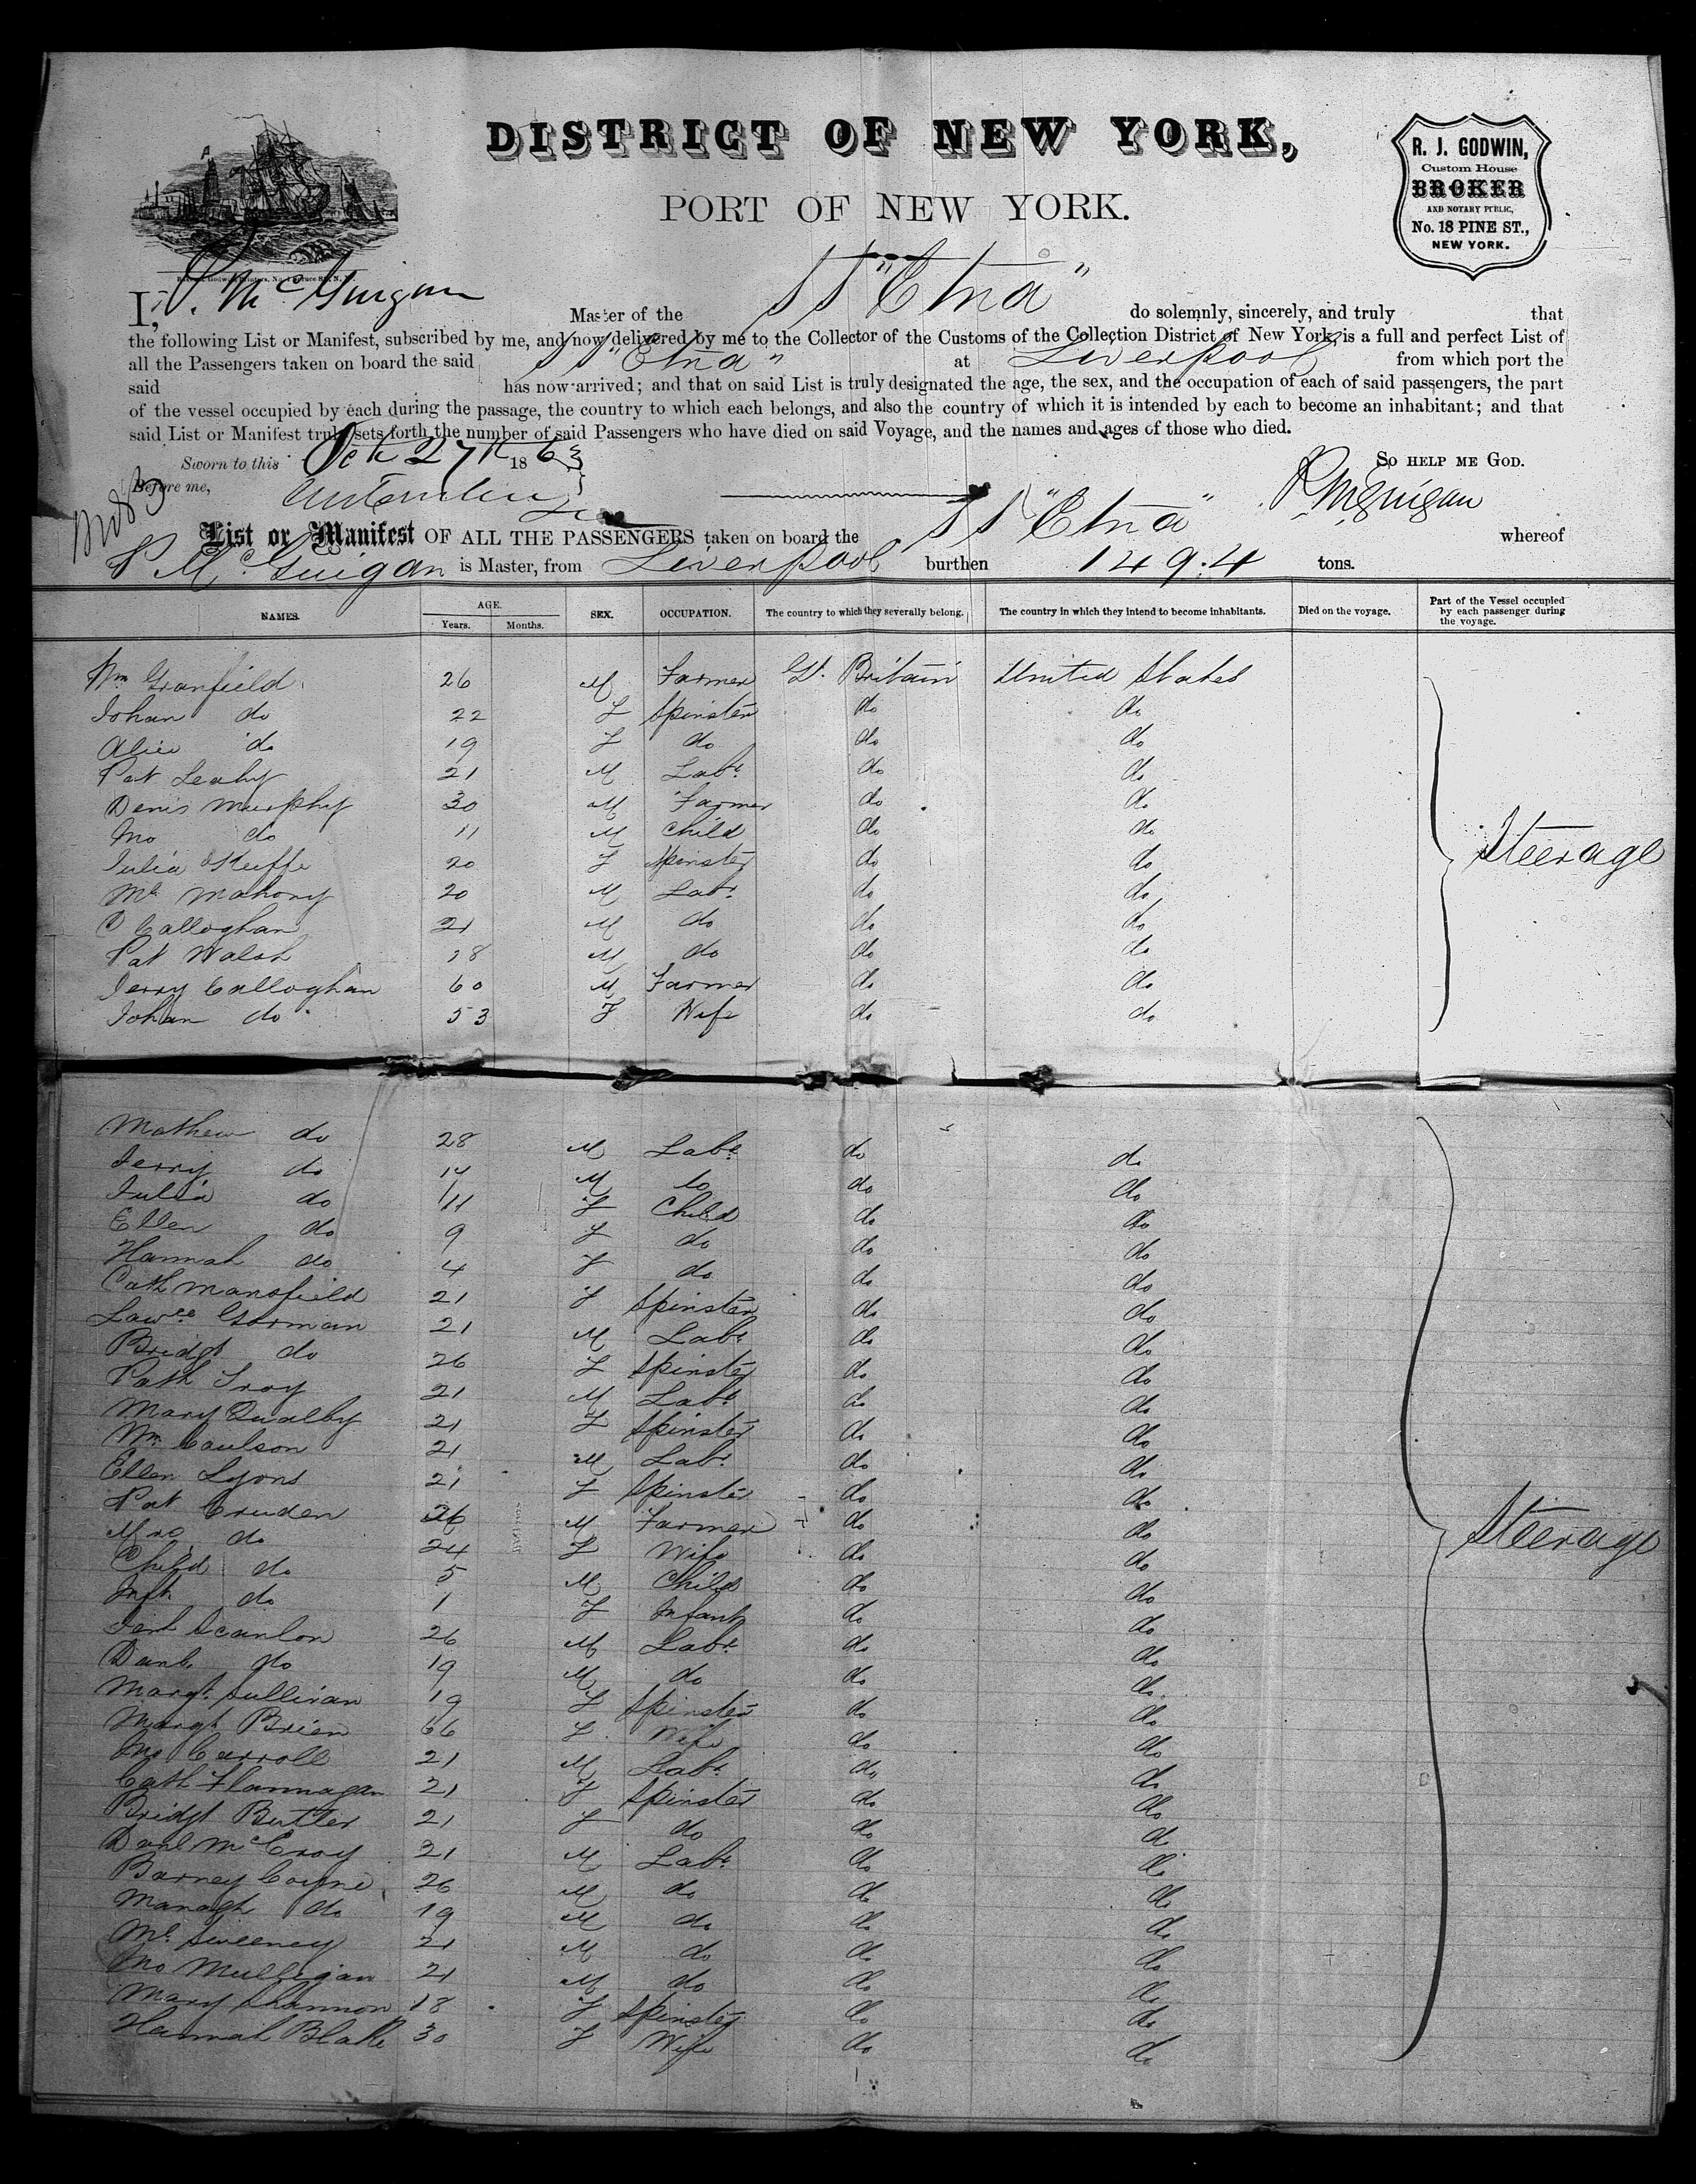 DISTRICT OF NEW YORK,
PORT OF NEW YORK.
R. J. GODWIN,
Custom House
BROKER
AND NOTARY PUBLIC,
No. 18 PINE ST.,
NEW YORK.
I, P. McGuigan Master of the SS "Etna" do solemnly, sincerely, and truly that
the following List or Manifest, subscribed by me, and now delivered by me to the Collector of the Customs of the Collection District of New York, is a full and perfect List of
all the Passengers taken on board the said SS "Etna" at Liverpool from which port the
said has now arrived; and that on said List is truly designated the age, the sex, and the occupation of each of said passengers, the part
of the vessel occupied by each during the passage, the country to which each belongs, and also the country of which it is intended by each to become an inhabitant; and that
said List or Manifest truly sets forth the number of said Passengers who have died on said Voyage, and the names and ages of those who died.
Sworn to this Oct 27th 1863 SO HELP ME GOD.
Before me, P McGuigan
List or Manifest OF ALL THE PASSENGERS taken on board the SS "Etna" whereof
P McGuigan is Master, from Liverpool burthen 149.4 tons.
NAMES. AGE. Years. Months. SEX. OCCUPATION. The country to which they severally belong. The country in which they intend to become inhabitants. Died on the voyage. Part of the Vessel occupied by each passenger during the voyage.
Wm Granfield 26 M Farmer Gt. Britain United States
Johan do 22 F Spinster do do
Alice do 19 F do do do
Pat Leahy 21 M Labr do do
Denis Murphy 30 M Farmer do do
Jno do 11 M Child do do
Julia OKeiffe 20 F Spinster do do Steerage
Ml Mahony 20 M Labr do do
O Calloghan 21 M do do do
Pat Walsh 18 M do do do
Jerry Calloghan 60 M Farmer do do
Johan do 53 F Wife do do
Mathew do 28 M Labr do do
Jerry do 14 M do do do
Julia do 11 F Child do do
Ellen do 9 F do do do
Hannah do 4 F do do do
Cath Mansfield 21 F Spinster do do
Lawce Gorman 21 M Labr do do
Bridgt do 26 F Spinster do do
Patk Troy 21 M Labr do do
Mary Qualby 21 F Spinster do do
Wm Caulson 21 M Labr do do
Ellen Lyons 21 F Spinster do do
Pat Cruden 26 M Farmer do do
Mrs do 24 F Wife do do Steerage
Child do 5 M Child do do
Inft do 1 F Infant do do
Jerh Scanlon 26 M Labr do do
Danl do 19 M do do do
Margt Sullivan 19 F Spinster do do
Margt Brien 66 F Wife do do
Jno Carroll 21 M Labr do do
Cath Flannagan 21 F Spinster do do
Bridgt Butler 21 F do do do
Danl McEroy 21 M Labr do do
Barney Coyne 26 M do do do
Managh do 19 M do do do
Ml Sweeney 21 M do do do
Jno Mulligan 21 M do do do
Mary Shannon 18 F Spinster do do
Hannah Blake 30 F Wife do do